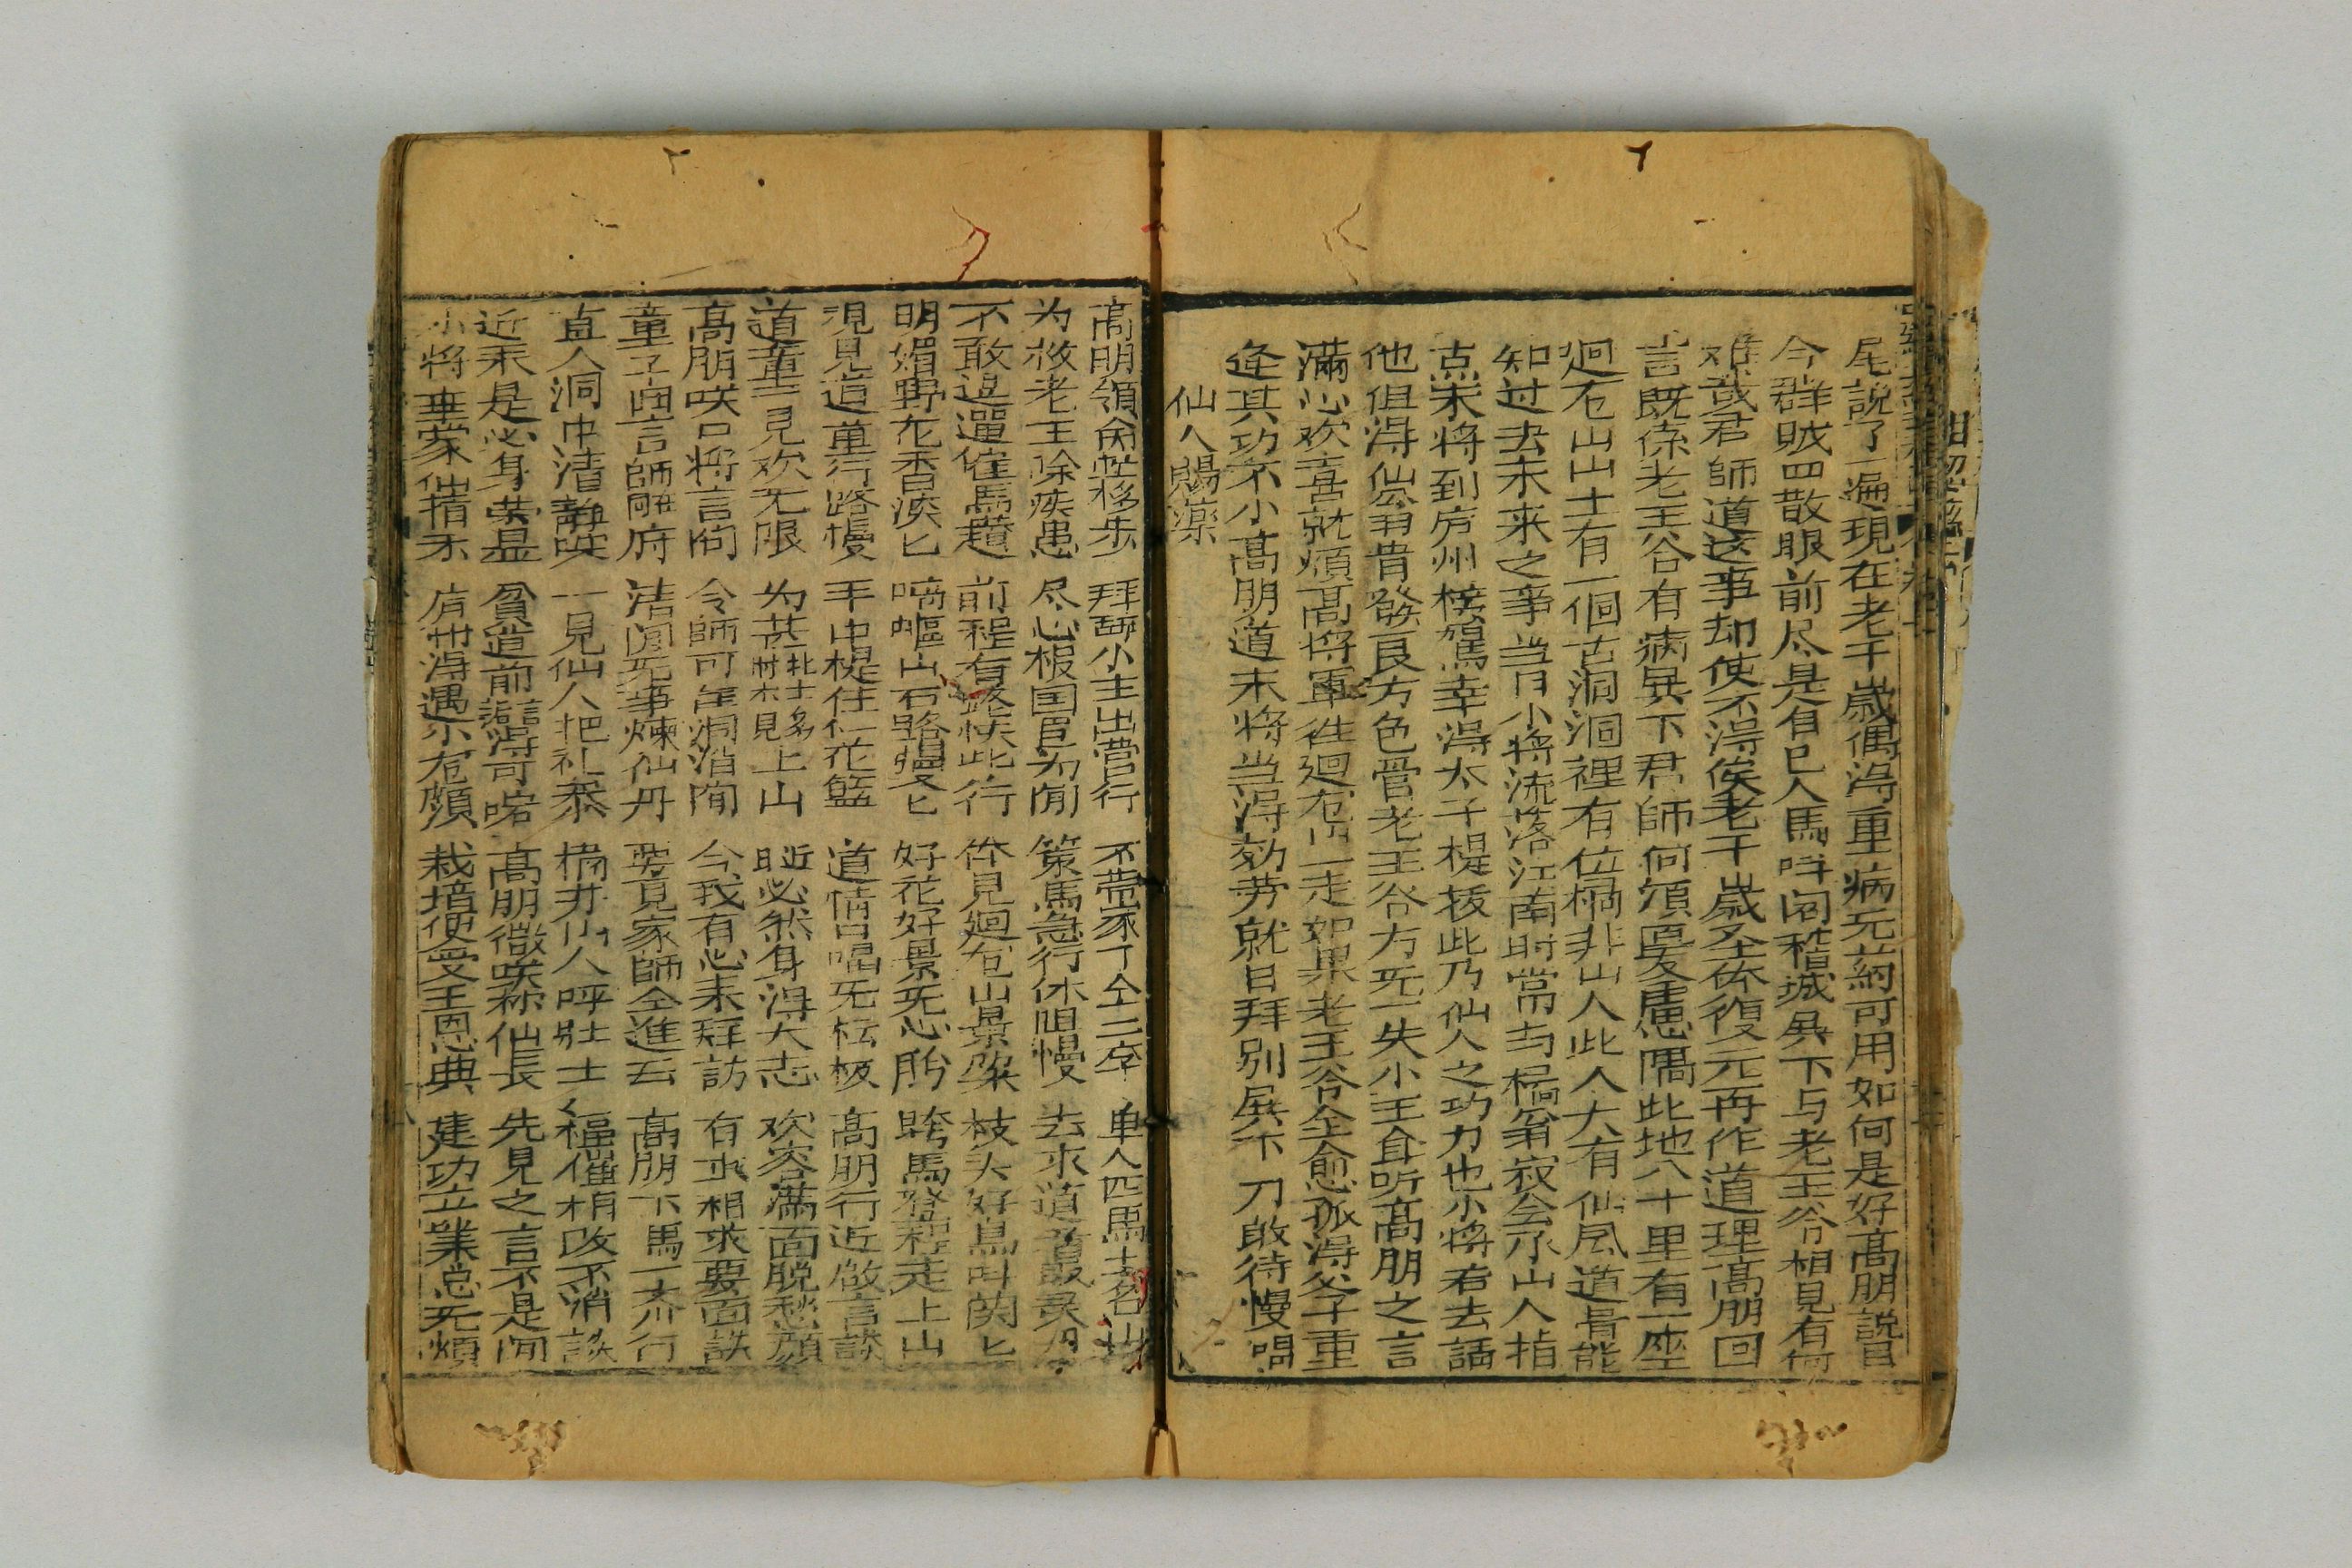 尾說了一遍現在老千歲偶淂重病无葯可用如何是好高朋說曰
今群賊四散眼前尽是自己人馬時囹稽誠㒷下与老王爷相見有何
难哉君師道这事却使不淂俟老千歲全体復元再作道理高朋回
言既係老王爷有病㒷下君師何須憂慮隔此地八十里有一座
迴石山山土有一個古洞洞裡有位橘井山人此人大有仙風道骨能
知过去未来之事当月小將流落江南時常与橘翁寂会承山人指
点未將到庐州榜駕幸淂太子提拔此乃仙人之功力也小將若去請
他但淂仙翁肯發良方色管老王爷方无一失小王自听高朋之言
滿心欢喜就煩高將軍徃迴石山一走如果老王爷全愈孤淂父子重
逢其功不小高朋道末將当淂効劳就日拜別㒷下刀敢待慢唱
仙人賜藥
高朋領命忙移步 拜辞小主出营行 不带家丁仝二卒 单人匹馬去名山
为救老王除疾患 尽心报国豈为閒 策馬急行休阻慢 去求道長最灵丹
不敢逗遛催馬趱 前程有路快此行 体見迴石山景染 枝头好鳥叫関匕
明媚野花香滚匕 崎嶇山石路慢匕 好花好景无心貯 跨馬登程走上山
現見道童行路慢 手中提住化花籃 道情口唱无松板 高朋行近啟言談
道童一見欢无限 为甚壯士移上山 近必然身淂大志 欢容滿面脫愁顔
高朋咲口將言问 令師可在洞消閒 今我有心未拜訪 有求相求要面談
童子面言師碓府 洁閒无事煉仙丹 要見家師仝進去 高朋下馬一齐行
直入洞中清静㗂 一見仙人把礼叅 橘井仙人呼壮士 福催相改不消談
近来是必身荣显 貧道前言淂可啱 高朋微咲称仙長 先見之言不是閒
小將幸蒙仙指示 庐州淂遇小龙顔 栽培便受王恩典 建功立業总无煩